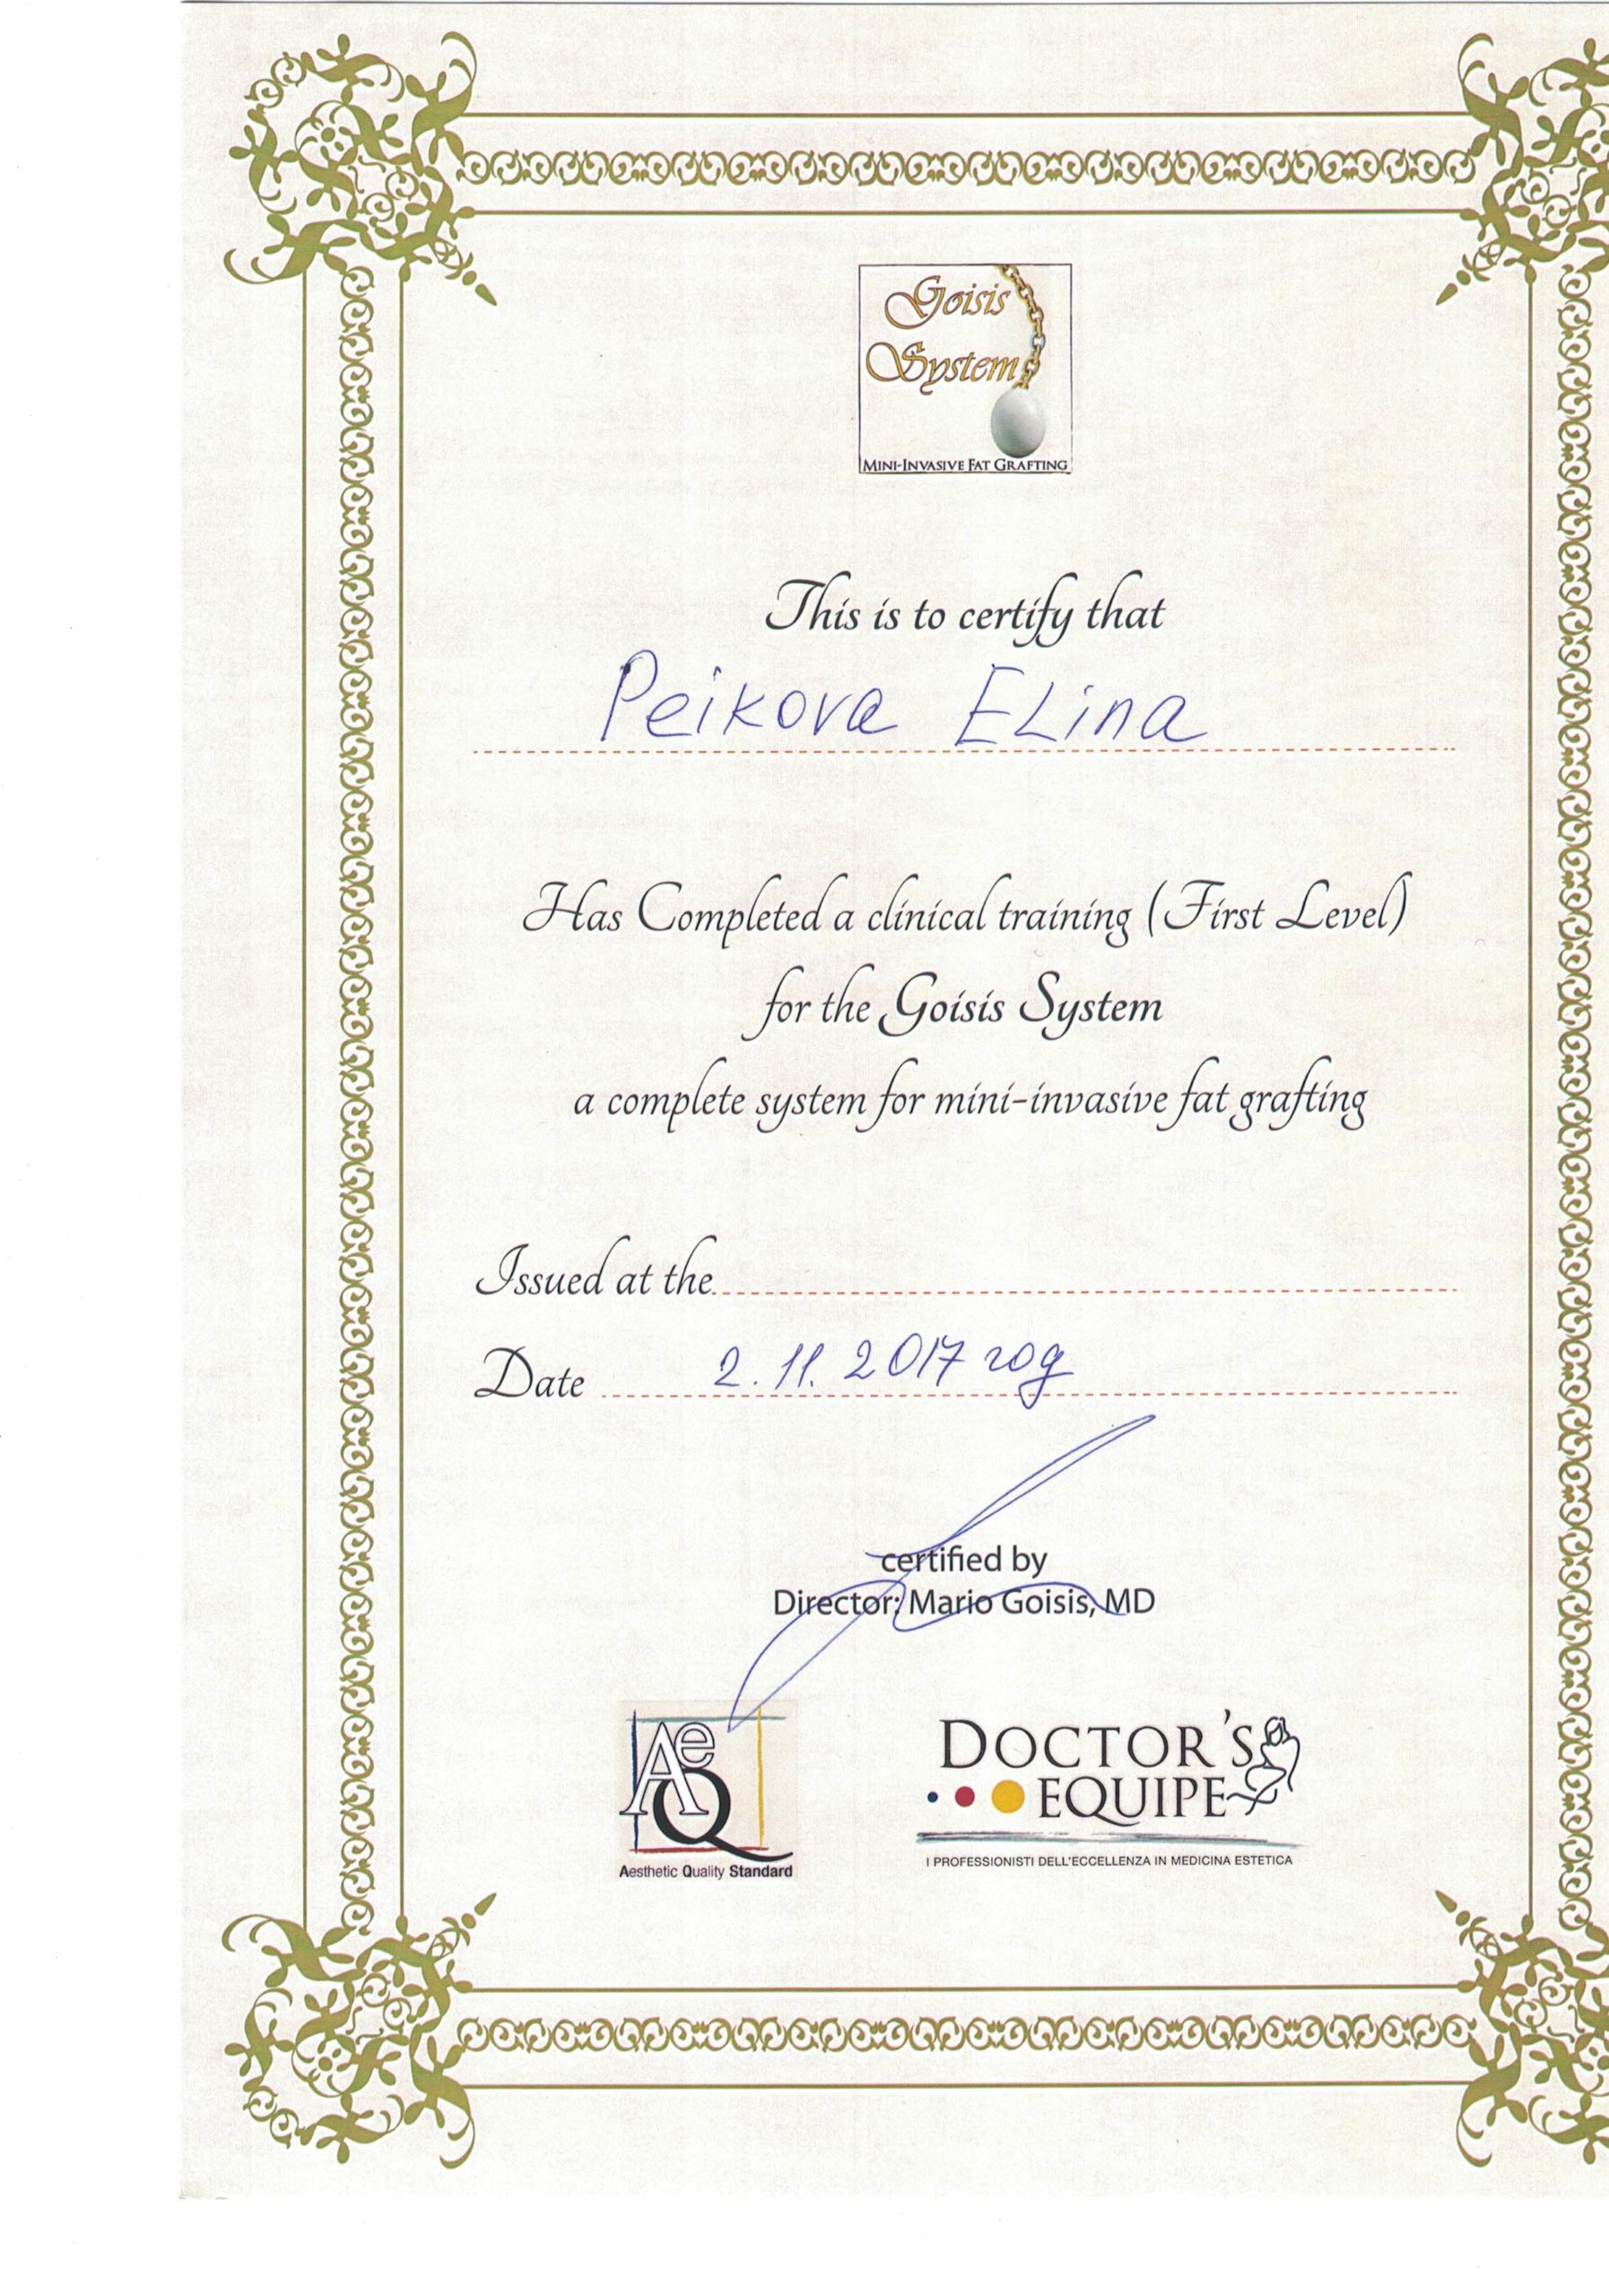 Goisis
System
MINI-INVASIVE FAT GRAFTING
This is to certify that
Peikova ELina
Has Completed a clinical training (First Level)
for the Goisis System
a complete system for mini-invasive fat grafting
Issued at the
Date 2.11.2017 год
certified by
Director: Mario Goisis, MD
AeQ
Aesthetic Quality Standard
DOCTOR'S
EQUIPE
I PROFESSIONISTI DELL'ECCELLENZA IN MEDICINA ESTETICA